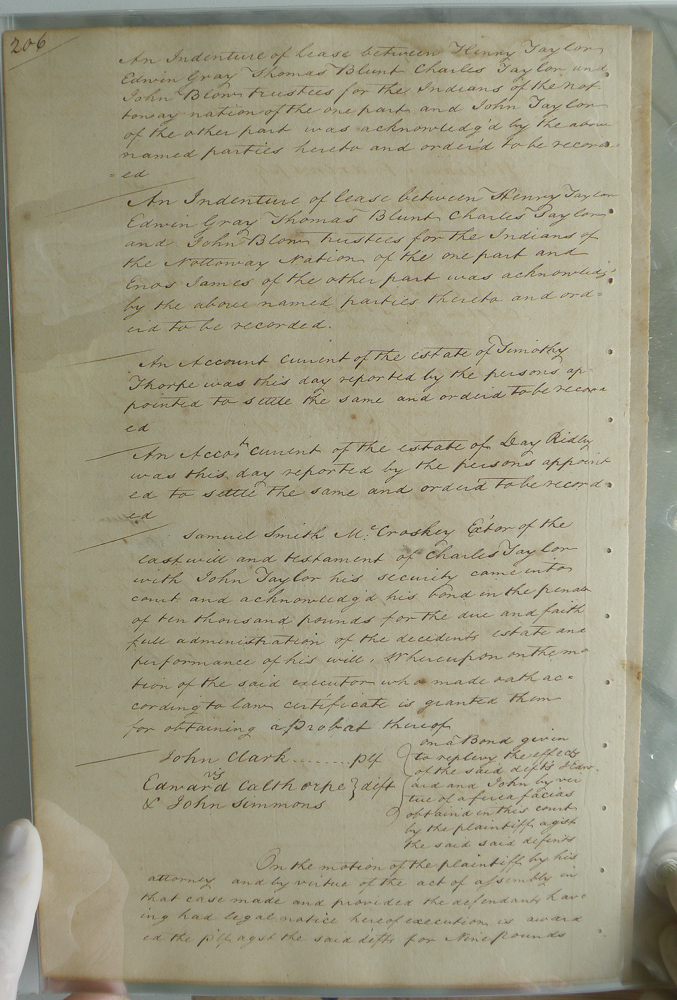 206
An Indenture of lease between Henry Taylor
Edwin Gray Thomas Blunt Charles Taylor and
John Blow trustees for the Indians of the Not
toway nation of the one part and John Taylor
of the other part was acknowledg'd by the above
named parties hereto and order'd to be record
=ed
An Indenture of lease between Henry Taylor
Edwin Gray Thomas Blunt Charles Taylor
and John Blow trustees for the Indians of
the Nottoway Nation of the one part and
Enos James of the other part was acknowledg'd
by the above named parties thereto and ord=
er'd to be recorded.
An Account current of the estate of Timothy
Thorpe was this day reported by the persons ap
pointed to settle the same and order'd to be record
ed
An Accot. current of the estate of Day Ridley
was this day reported by the persons appoint
ed to settle the same and order'd to be record
ed
Samuel Smith Mc.Croskey Exor of the
last will and testament of Charles Taylor
with John Taylor his security came into
court and acknowledg'd his bond in the penalty
of ten thousand pounds for the due and faith
full administration of the decedents estate and
performance of his will. Whereupon on the mo
tion of the said executor who made oath ac=
cording to law certificate is granted them
for obtaining a Probat thereof
John Clark........plf
vs
Edward Calthorpe } defts
& John Simmons
on a Bond given
to replevy the effects
of the said defts Edw=
ard and John by vir
tue of a fiera facias
obtaind in this court
by the plaintiff agst
the said said defents
On the motion of the plaintiff by his
attorney and by virtue of the act of assembly in
that case made and provided the defendants hav
ing had legal notice hereof execution is award
ed the plf agst the said defts for Nine Pounds